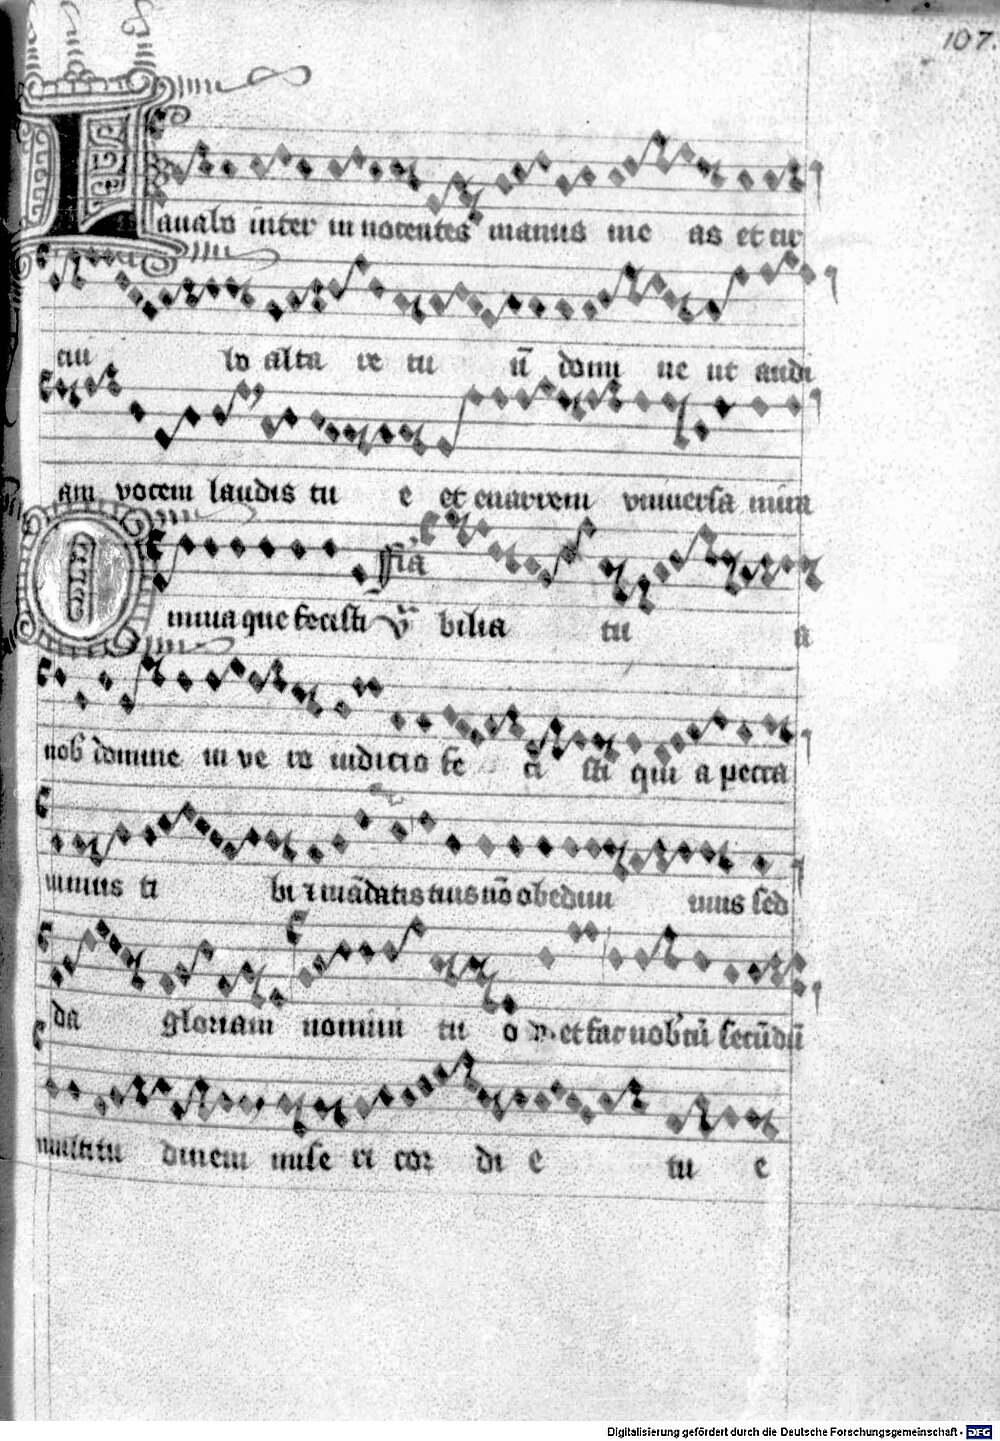 107.
Lauabo inter innocentes manus me as et cir
cui bo alta re tu ū domi ne ut audi
am vocem laudis tu e et enarrem vniuersa mira
bilia tu a
Omnia que fecisti
nob domine in ve ro iudicio fe ci sti qui a pecca
uimus ti bi ⁊ mādatis tuis nō obediui mus sed
da gloriam nomini tu o et fac nob cū secūdū
multitu dinem mise ri cor di e tu e
Digitalisierung gefördert durch die Deutsche Forschungsgemeinschaft - DFG